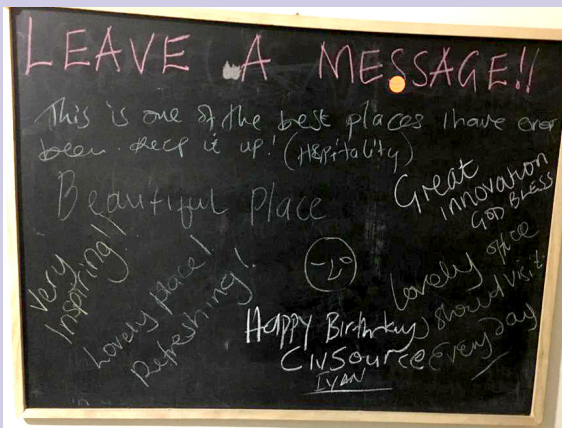 LEAVE A MESSAGE!!
This is one of the best places I have ever
been. keep it up! (Hspitality)
Beautiful Place
Great
innovation
GOD BLESS
Very
Inspiring!!
Lovely place!
Refreshing!
Lovely
should visit
Every day
Happy Birthday
CivSource
IVAN